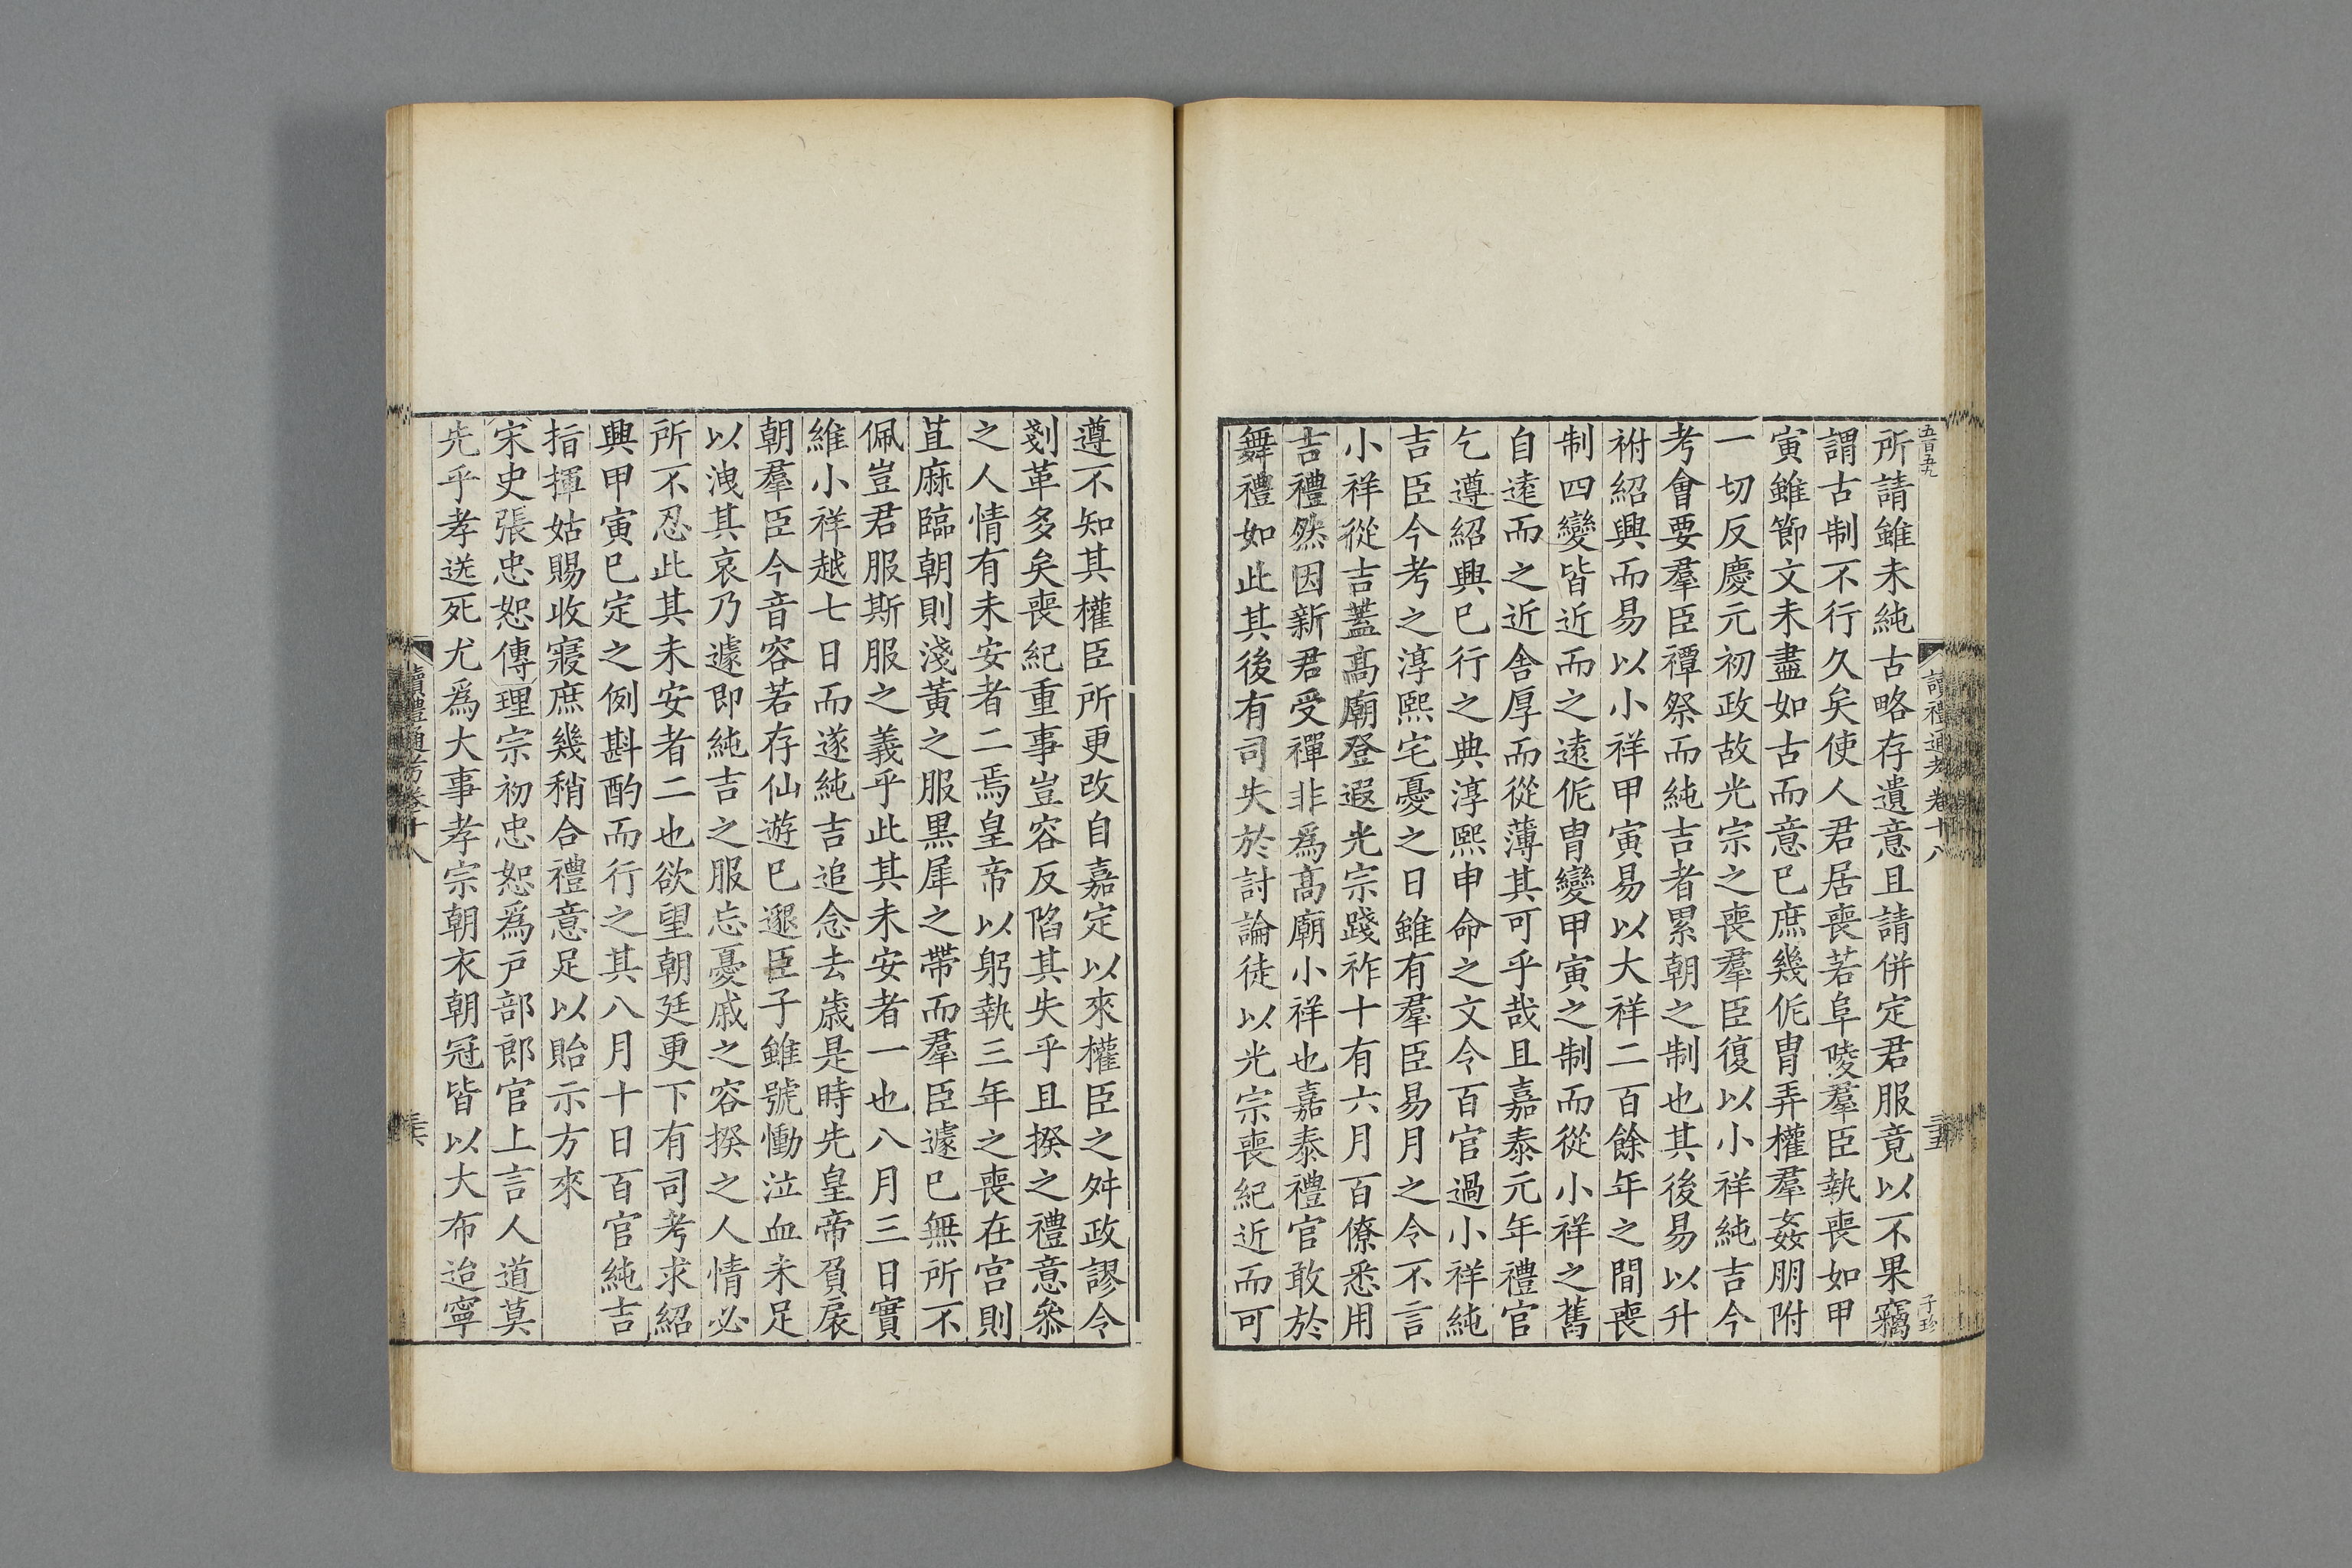 五百五九
讀禮通考卷十八
三五
子珍
所請雖未純古略存遺意且請併定君服竟以不果竊
謂古制不行久矣使人君居喪若阜陵羣臣執喪如甲
寅雖節文未盡如古而意巳庶幾侂胄弄權羣姦朋附
一切反慶元初政故光宗之喪羣臣復以小祥純吉今
考會要羣臣禫祭而純吉者累朝之制也其後易以升
祔紹興而易以小祥甲寅易以大祥二百餘年之間喪
制四變皆近而之遠侂胄變甲寅之制而從小祥之舊
自遠而之近舍厚而從薄其可乎哉且嘉泰元年禮官
乞遵紹興巳行之典淳熙申命之文令百官過小祥純
吉臣今考之淳熙宅憂之日雖有羣臣易月之令不言
小祥從吉蓋高廟登遐光宗踐祚十有六月百僚悉用
吉禮然因新君受禪非爲高廟小祥也嘉泰禮官敢於
舞禮如此其後有司失於討論徒以光宗喪紀近而可
遵不知其權臣所更改自嘉定以來權臣之舛政謬令
剗革多矣喪紀重事豈容反陷其失乎且揆之禮意叅
之人情有未安者二焉皇帝以躬執三年之喪在宫則
苴麻臨朝則淺黃之服黑犀之帶而羣臣遽巳無所不
佩豈君服斯服之義乎此其未安者一也八月三日實
維小祥越七日而遂純吉追念去歲是時先皇帝負扆
朝羣臣今音容若存仙遊巳邈臣子雖號慟泣血未足
以洩其哀乃遽即純吉之服忘憂戚之容揆之人情必
所不忍此其未安者二也欲望朝廷更下有司考求紹
興甲寅巳定之例斟酌而行之其八月十日百官純吉
指揮姑賜收寢庶幾稍合禮意足以貽示方來
宋史張忠恕傳理宗初忠恕爲戸部郎官上言人道莫
先乎孝送死尤爲大事孝宗朝衣朝冠皆以大布迨寧
讀禮通考卷十八
三六